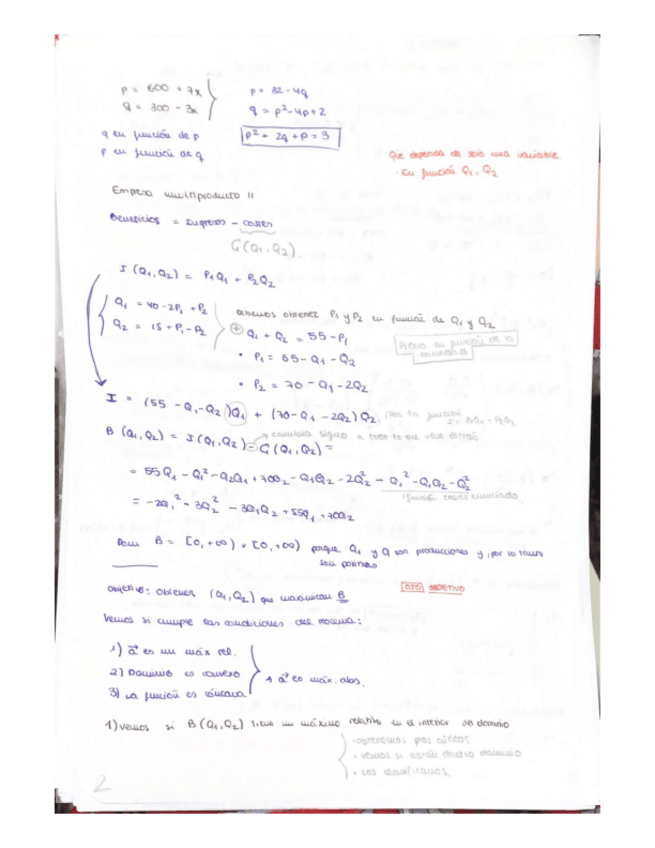 p = 600 + 7x
q = 300 - 3x
p = 82 - 4q
q = p² - 4p + 2
q en función de p
p² + 2q + p = 3
p en función de q
Que dependa de solo una variable.
· En función Q₁, Q₂
Empresa multiproducto II
Beneficios = Ingresos - costes
G(Q₁, Q₂).
I (Q₁, Q₂) = P₁Q₁ + P₂Q₂
Q₁ = 40 - 2P₁ + P₂
Q₂ = 15 + P₁ - P₂
obtener P₁ y P₂ en función de Q₁ y Q₂
+ Q₁ + Q₂ = 55 - P₁
Precio en función de la cantidad
• P₁ = 55 - Q₁ - Q₂
• P₂ = 70 - Q₁ - 2Q₂
I = (55 - Q₁ - Q₂)Q₁ + (70 - Q₁ - 2Q₂) Q₂
B (Q₁, Q₂) = I (Q₁, Q₂) - G (Q₁, Q₂) =
cambia signo a todo lo que vaya detrás
= 55Q₁ - Q₁² - Q₂Q₁ + 70Q₂ - Q₁Q₂ - 2Q₂² - Q₁² - Q₁Q₂ - Q₂²
función costes enunciado
= -2Q₁² - 3Q₂² - 3Q₁Q₂ + 55Q₁ + 70Q₂
Dom B = [0, +∞) x [0, +∞) porque Q₁ y Q son producciones y, por lo tanto
son positivas
objetivo: obtener (Q₁, Q₂) que maximizan B
OJO OBJETIVO
Vemos si cumple las condiciones del teorema:
1) a⃗ es un máx rel.
2) Dominio es convexo
→ a⃗ es máx. abs.
3) La función es cóncava
1) vemos si B (Q₁, Q₂) tiene un máximo relativo en el interior del dominio
· obtenemos ptos críticos
· vemos si están dentro dominio
· Los clasificamos.
2